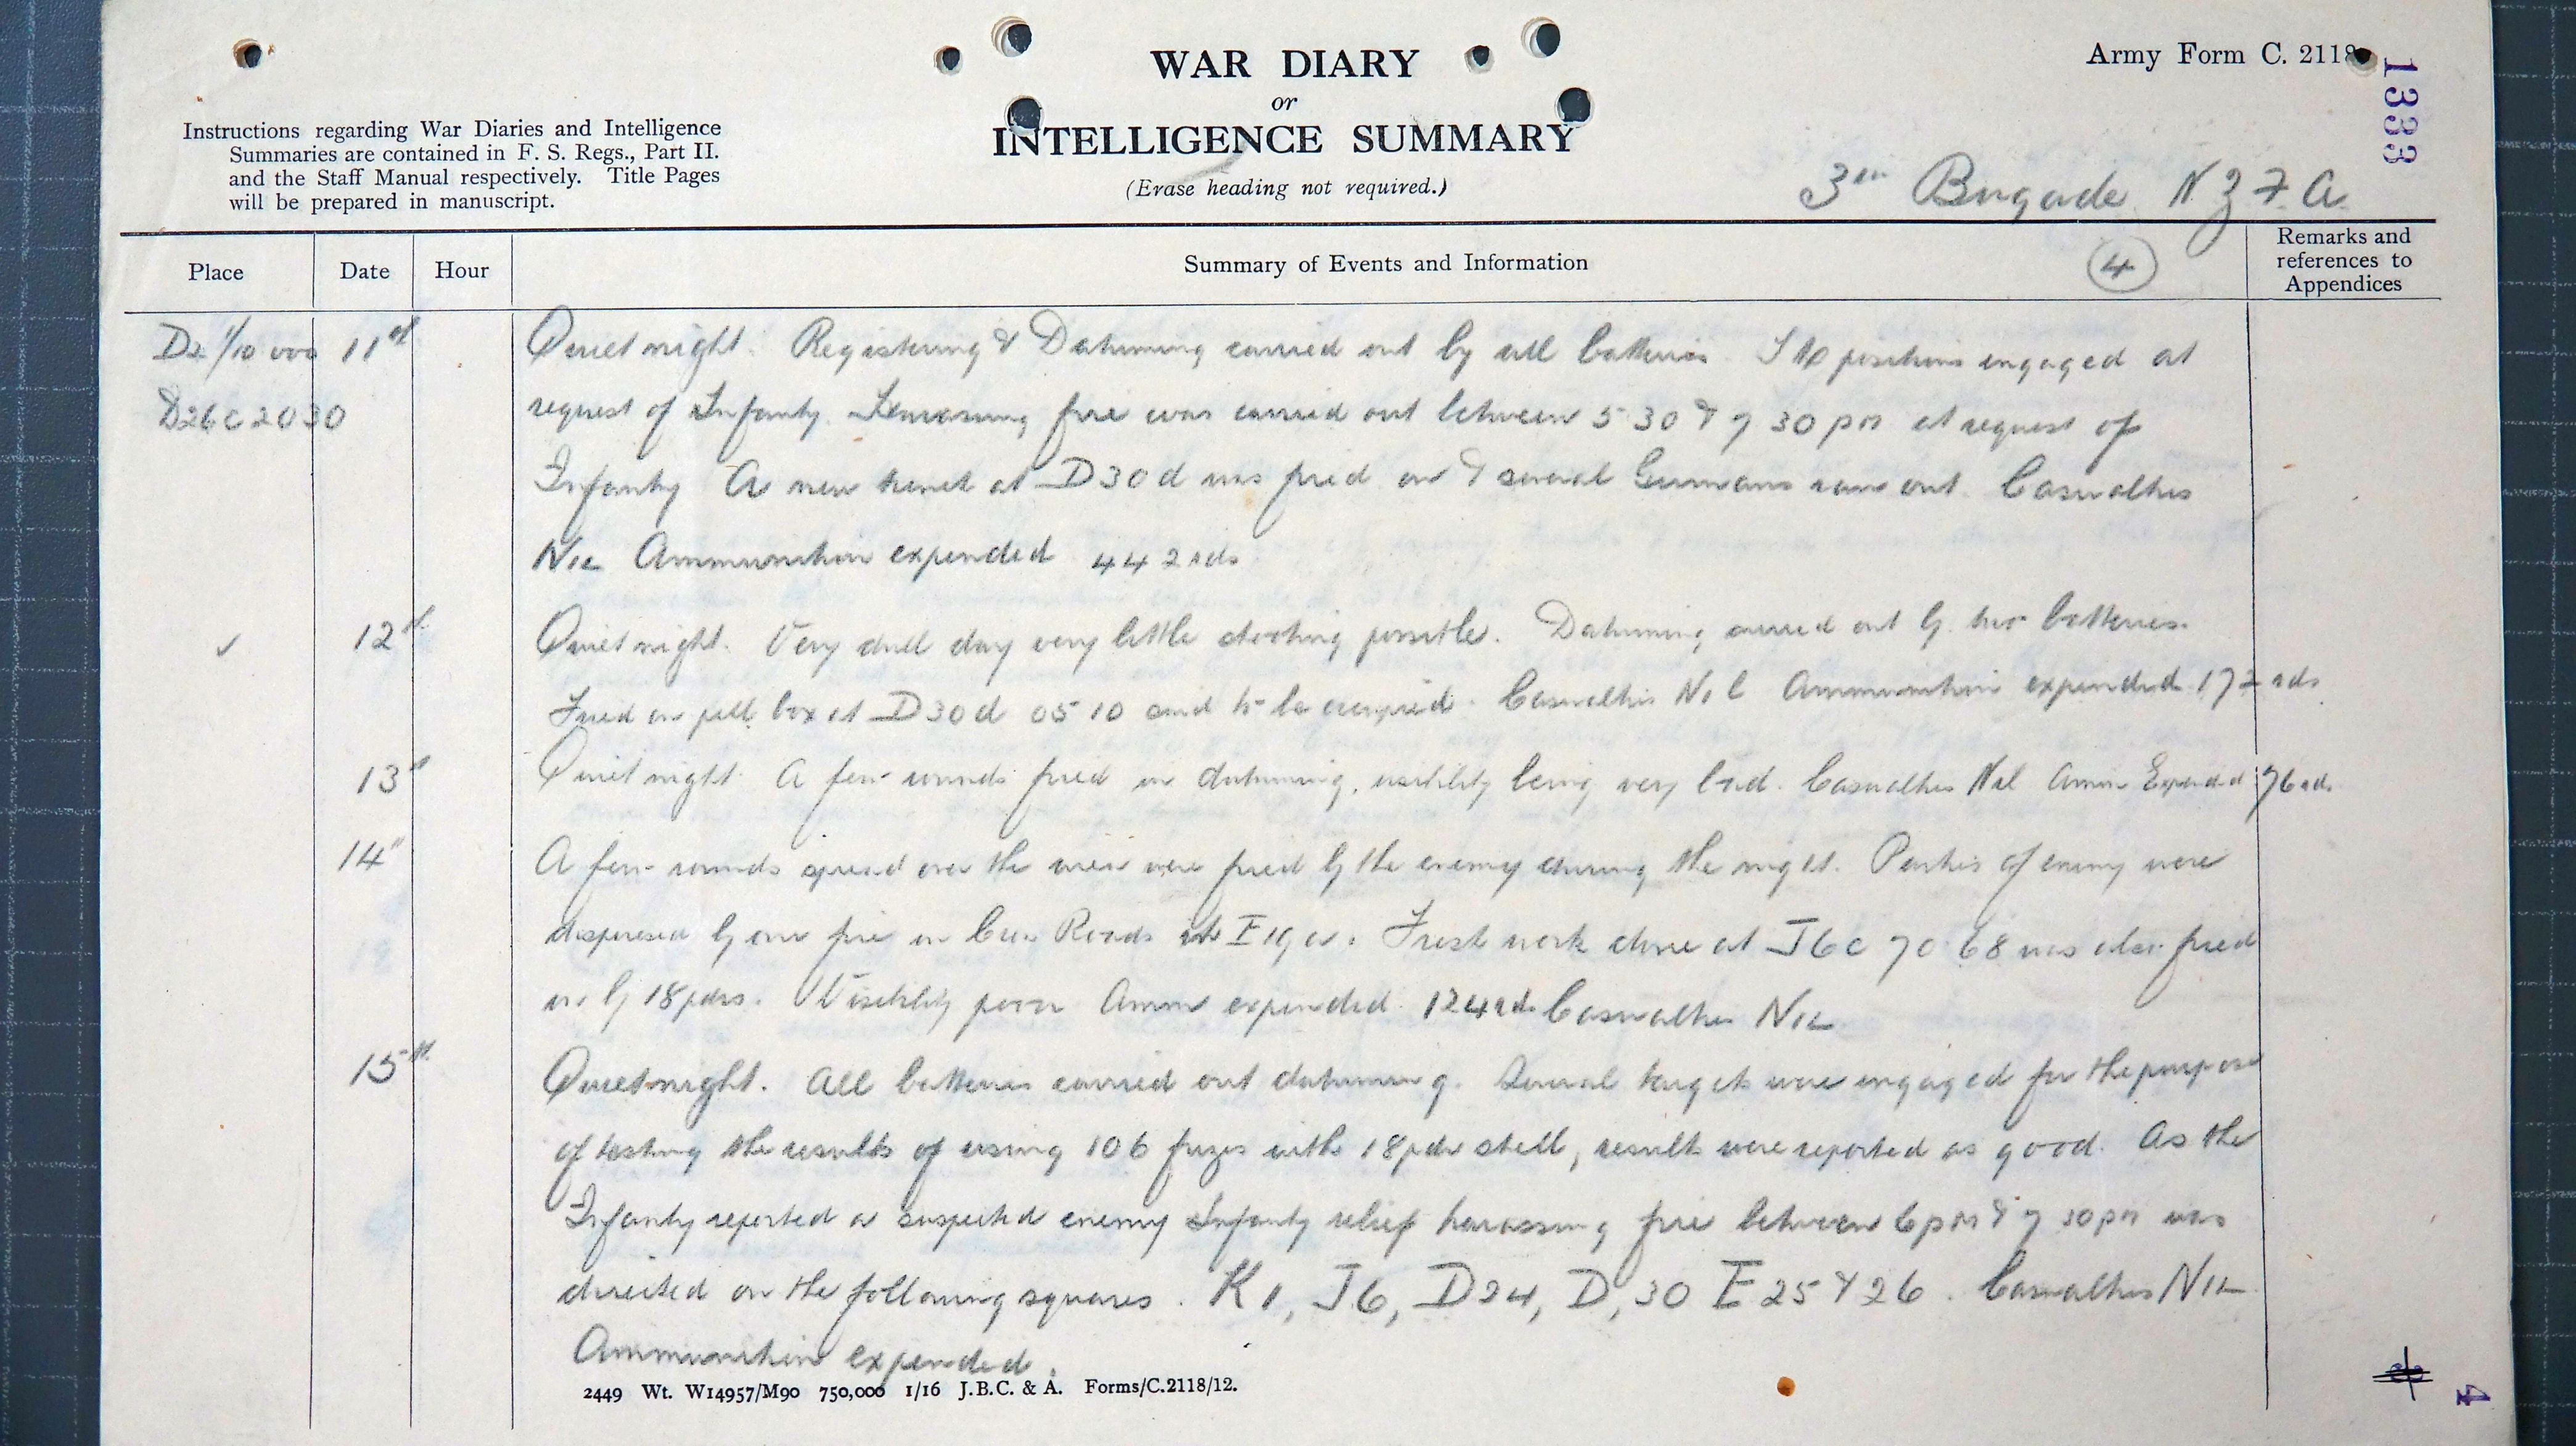 WAR DIARY
or
INTELLIGENCE SUMMARY
(Erase heading not required.)
Army Form C. 2118
1333
Instructions regarding War Diaries and Intelligence
Summaries are contained in F. S. Regs., Part II.
and the Staff Manual respectively. Title Pages
will be prepared in manuscript.
3rd Brigade NZFA
Place Date Hour Summary of Events and Information 4 Remarks and references to Appendices
11th Quiet night. Registering & Datuming carried out by all batteries positions engaged at
D26c2030 request of Infantry. Harassing fire was carried out between 5 30 & 7 30 pm at request of
Infantry A new trench at D30d was fired on & several Germans ran out. Casualties
NIL Ammunition expended 442 rds
12th Quiet night. Very dull day very little shooting possible. Datuming carried out by two batteries.
Fired on pill box at D30d 05 10 said to be occupied. Casualties Nil Ammunition expended 172 rds
13th Quiet night. A few rounds fired in datuming, visibility being very bad. Casualties Nil Ammn Expended 76 rds.
14th A few rounds spread over the area were fired by the enemy during the night. Parties of enemy were
dispersed by our fire on Cross Roads at E19a. Fresh work done at J6c 70 68 was also fired
on by 18pdrs. Visibility poor Ammn expended 124 rds Casualties NIL
15th Quiet night. All batteries carried out datuming. Several targets were engaged for the purpose
of testing the results of using 106 fuzes with 18pdr shell, results were reported as good. As the
Infantry reported a suspected enemy Infantry relief harassing fire between 6pm & 7 30pm was
directed on the following squares. K1, J6, D24, D,30 E25 & 26. Casualties NIL
Ammunition expended.
2449 Wt. W14957/M90 750,000 1/16 J.B.C. & A. Forms/C.2118/12.
4